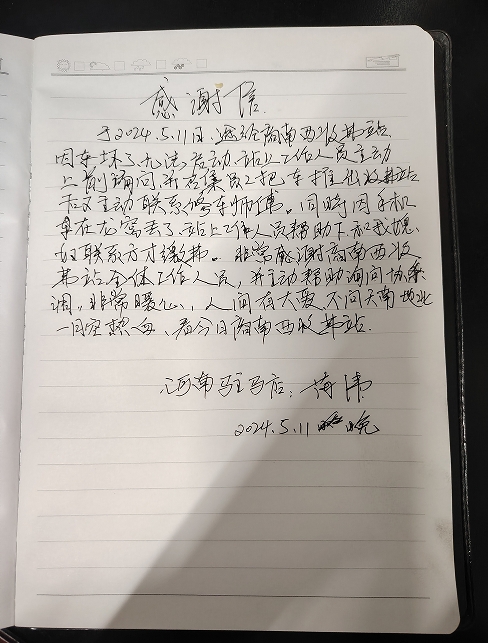 感谢信
于2024.5.11日,途经商南西收费站
因车坏了无法发动,站上工作人员主动
上前询问,并召集员工把车推出收费站
和主动联系修车师傅。同时因手机
在在窝丢了,站上工作人员帮助下和我媳
妇联系方才缴费。非常感谢商南西收
费站全体工作人员,并主动帮助询问协
调,非常暖心,人间有大爱 不问天南地北
一同, 看今日商南西收费站.
河南驻马店:蒋伟
2024.5.11 晚